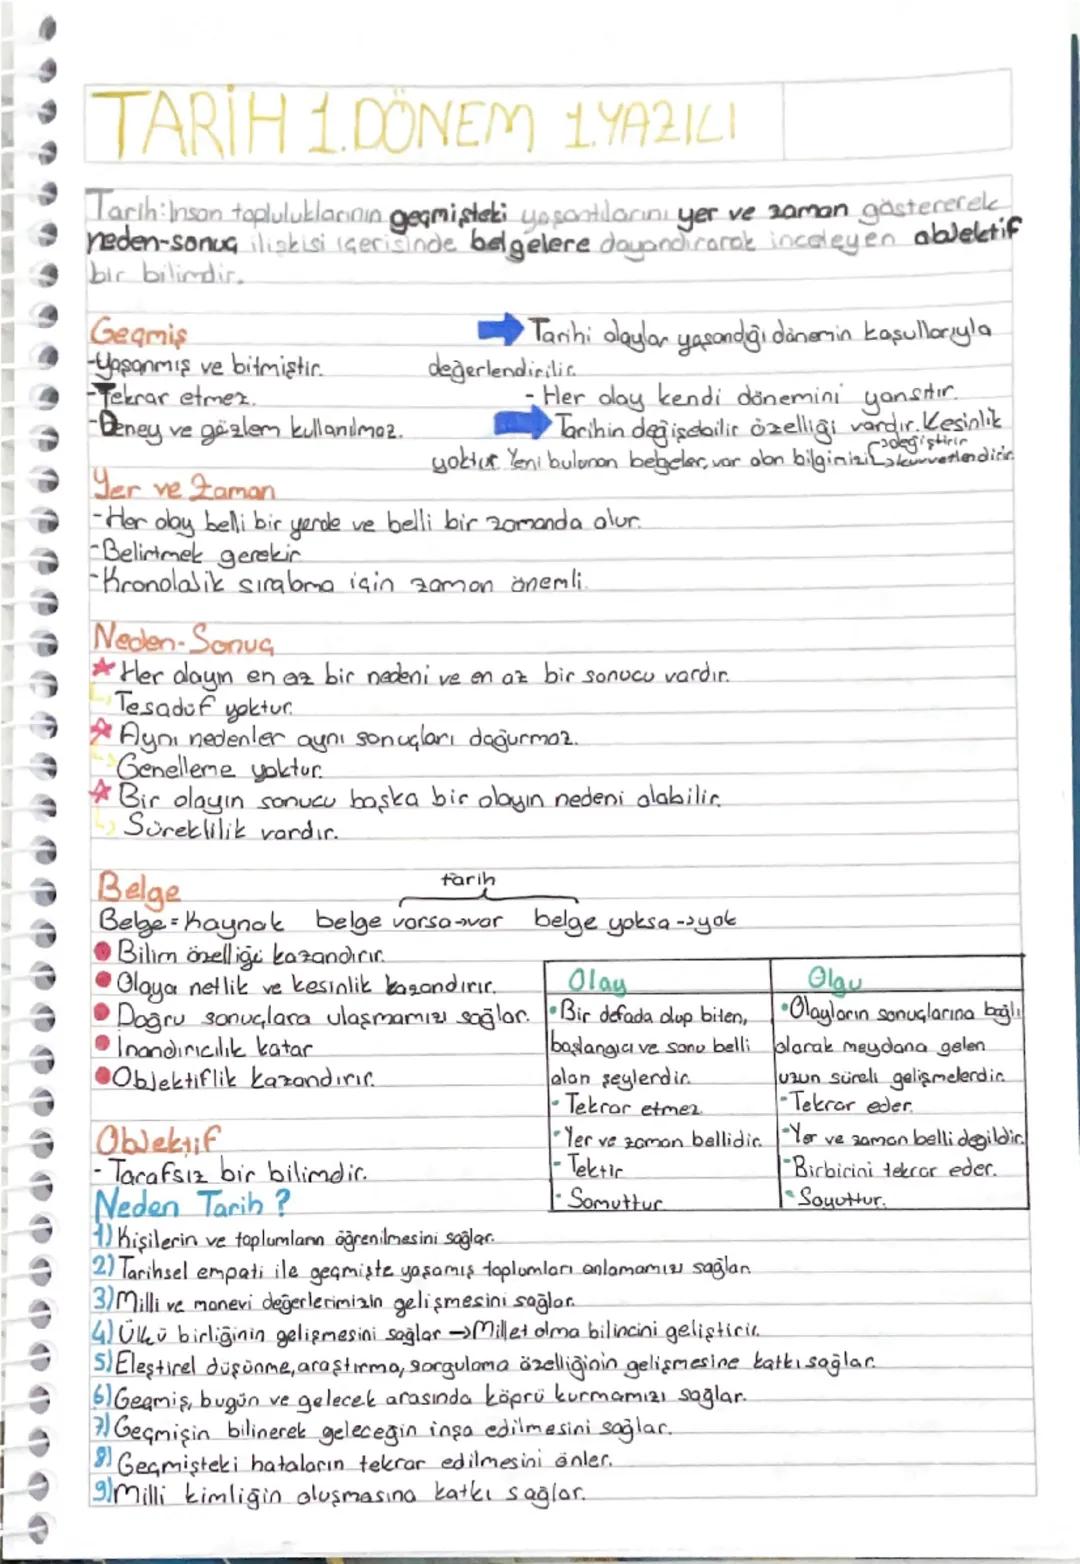 TARİH 1.DÖNEM 1.YAZILI
Tarih: İnsan topluluklarının geçmişteki yaşantılarını yer ve zaman göstererek
neden-sonuç ilişkisi içerisinde belgelere dayandırarak inceleyen objektif
bir bilimdir.
Geçmiş
-Yaşanmış ve bitmiştir.
-Tekrar etmez.
-Deney ve gözlem kullanılmaz.
Tarihi olaylar yaşandığı dönemin koşullarıyla
değerlendirilir.
- Her olay kendi dönemini yansıtır.
Tarihin değişebilir özelliği vardır. Kesinlik
yoktur. Yeni bulunan belgeler, var olan bilginizi
→değiştirir
→kuvvetlendirir.
Yer ve Zaman
-Her olay belli bir yerde ve belli bir zamanda olur.
-Belirtmek gerekir.
-Kronolojik sıralama için zaman önemli.
Neden-Sonuç
Her olayın en az bir nedeni ve en az bir sonucu vardır.
Tesadüf yoktur.
Aynı nedenler aynı sonuçları doğurmaz.
Genelleme yoktur.
Bir olayın sonucu başka bir olayın nedeni olabilir.
Süreklilik vardır.
Belge
tarih
Belge=Kaynak belge varsa→var belge yoksa→yok
Bilim özelliği kazandırır.
Olaya netlik ve kesinlik kazandırır.
Doğru sonuçlara ulaşmamızı sağlar.
İnandırıcılık katar
Objektiflik kazandırır.
Objektif
- Tarafsız bir bilimdir.
Olay
•Bir defada olup biten,
başlangıcı ve sonu belli
olan şeylerdir.
•Tekrar etmez
•Yer ve zaman bellidir.
•Tektir
•Somuttur
Olgu
•Olayların sonuçlarına bağlı
olarak meydana gelen
uzun süreli gelişmelerdir.
•Tekrar eder.
•Yer ve zaman belli değildir.
•Birbirini tekrar eder.
•Soyuttur.
Neden Tarih ?
1) Kişilerin ve toplumların öğrenilmesini sağlar.
2) Tarihsel empati ile geçmişte yaşamış toplumları anlamamızı sağlar.
3) Milli ve manevi değerlerimizin gelişmesini sağlar.
4) Ülkü birliğinin gelişmesini sağlar →Millet olma bilincini geliştirir.
5) Eleştirel düşünme, araştırma, sorgulama özelliğinin gelişmesine katkı sağlar.
6) Geçmiş, bugün ve gelecek arasında köprü kurmamızı sağlar.
7) Geçmişin bilinerek geleceğin inşa edilmesini sağlar.
8) Geçmişteki hataların tekrar edilmesini önler.
9) Milli kimliğin oluşmasına katkı sağlar.